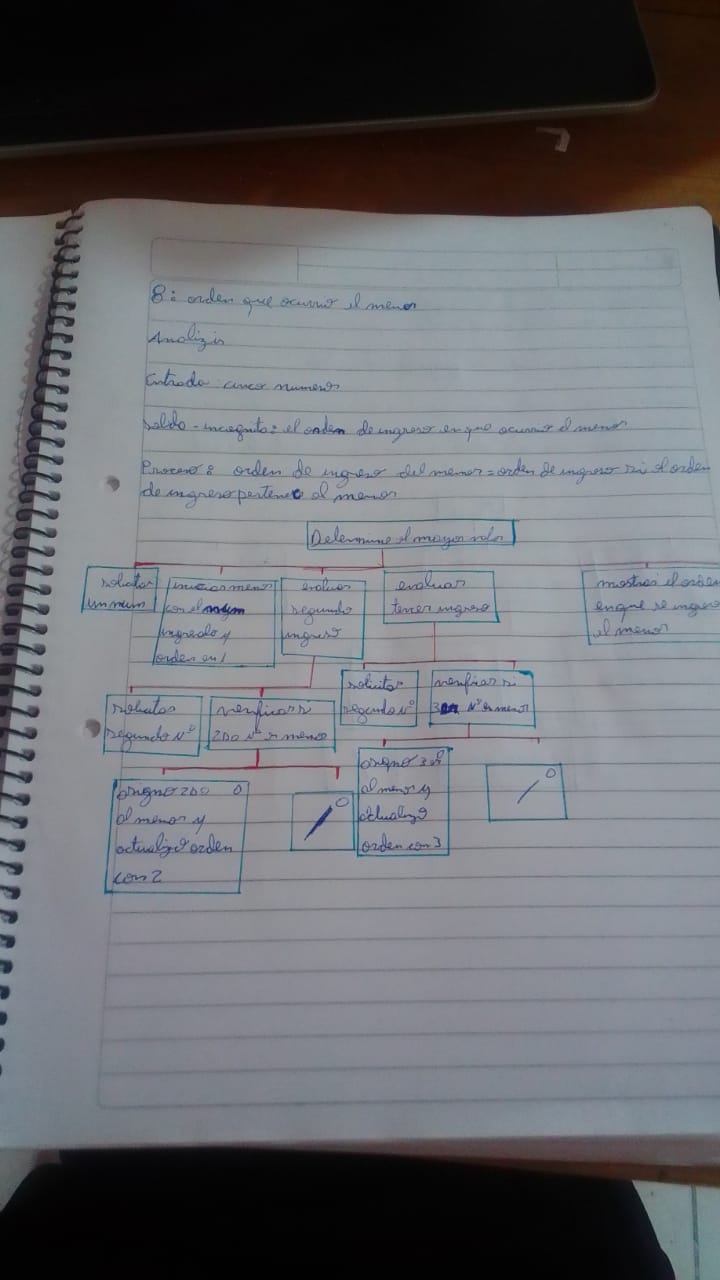 8: orden que ocurrio el menor
Analizis
Entrada: cinco numeros
Salda - incognita: el orden de ingreso en que ocurrio el menor
Proceso: orden de ingreso del menor = orden de ingreso si el orden
de ingreso pertenece al menor
Determine el mayor valor
solicitar
un num
iniciar menor
con el num
ingresado y
orden en 1
evaluar
segundo
ingreso
evaluar
tercer ingreso
mostrar el orden
en que se ingreso
el menor
solicitar
segundo Nº
verificar si
2DO Nº es menor
solicitar
segundo Nº
verificar si
3 Nº es menor
asigno 2DO O
al menor y
actualizo orden
con 2
O
asigno 3
al menor y
actualizo
orden con 3
O